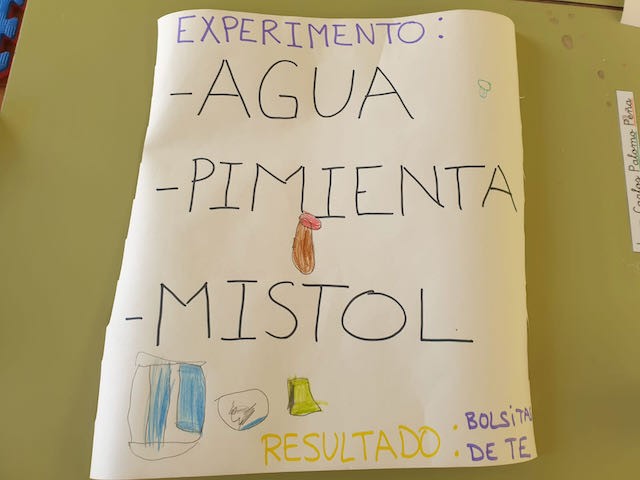 EXPERIMENTO:
-AGUA
-PIMIENTA
-MISTOL
RESULTADO: BOLSITAS
DE TE
Carlos Palomo Peña